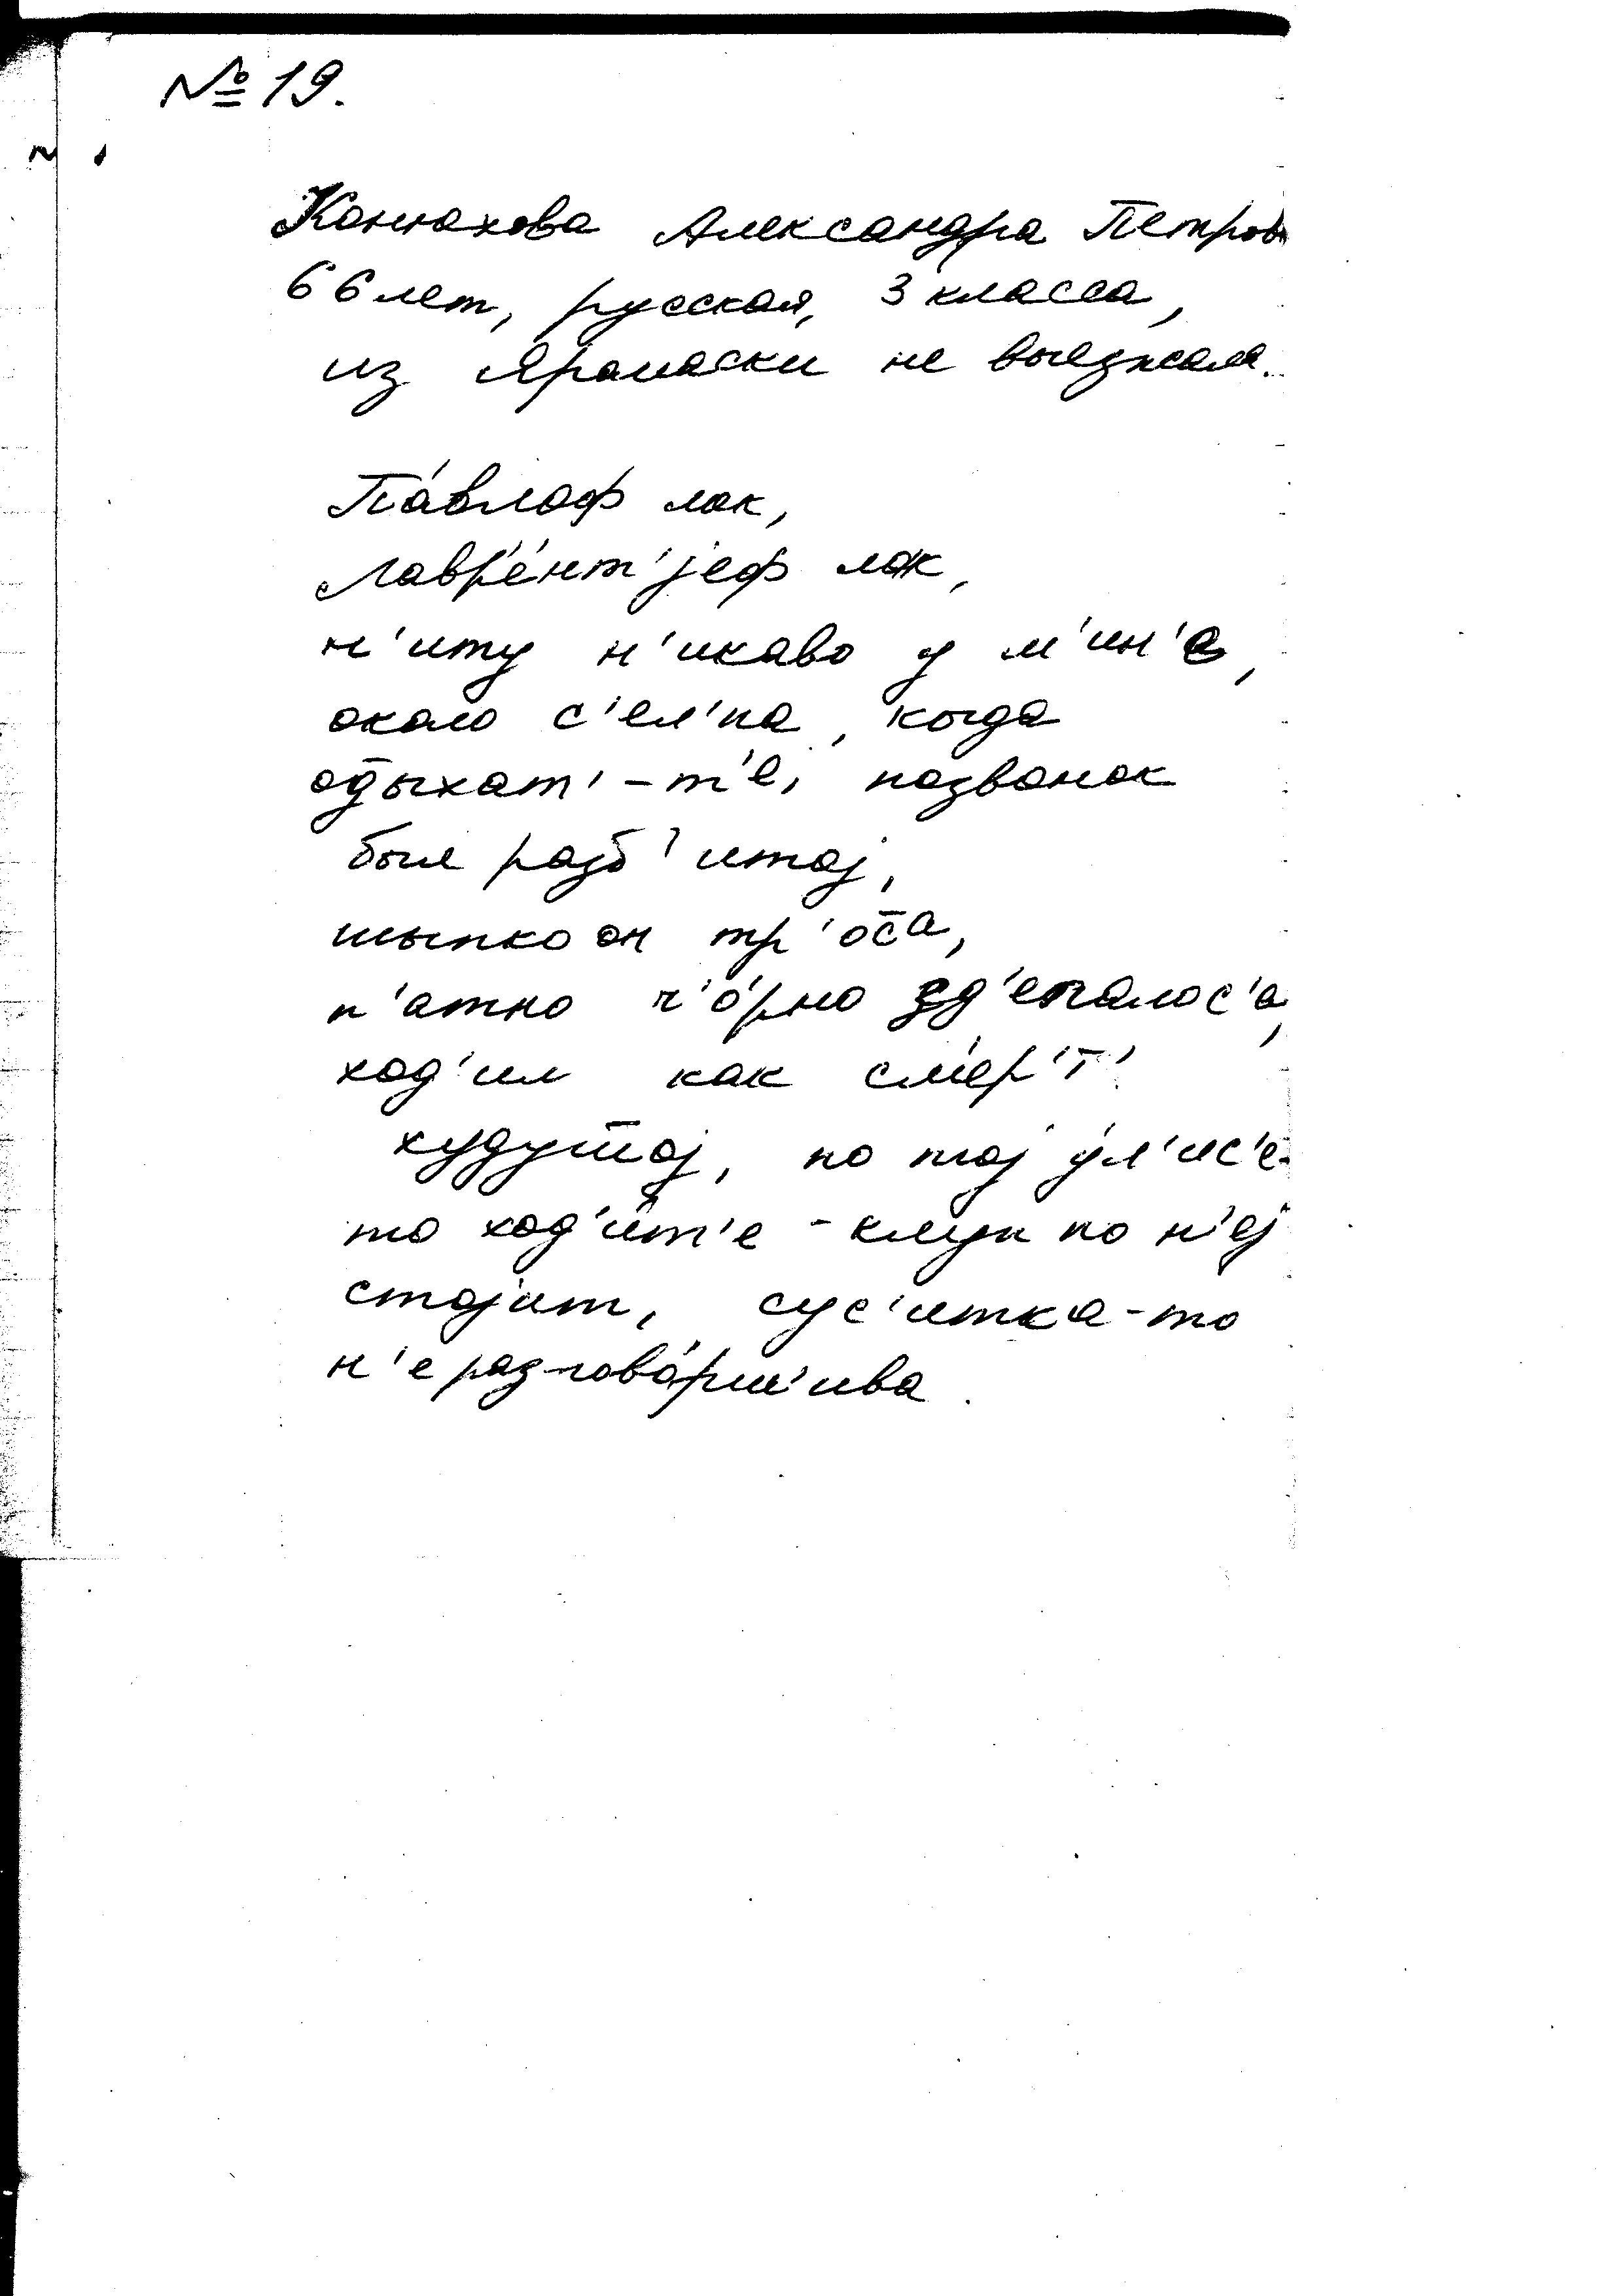 № 19.
Конюхова Александра Петров
66 лет, русская, 3 класса,
из Ярамаски не выезжала.
Па́влоф лок,
Лавр'е́нт'јеф лок,
н'иту н'икаво у м'ин'е,
около с'ел'па, когда
од̄ыхат'-т'е, позвонок
был разб'итој,
шыпко он тр'ос̄а,
п'атно ч'о́рно зд'елалос'а,
ход'ил как см'ер'т'
худушој, по тој у́л'ис'е-
то ход'ит'е - клуп по н'еј
стојит, сус'итка-то
н'е разгово́рш'ива.